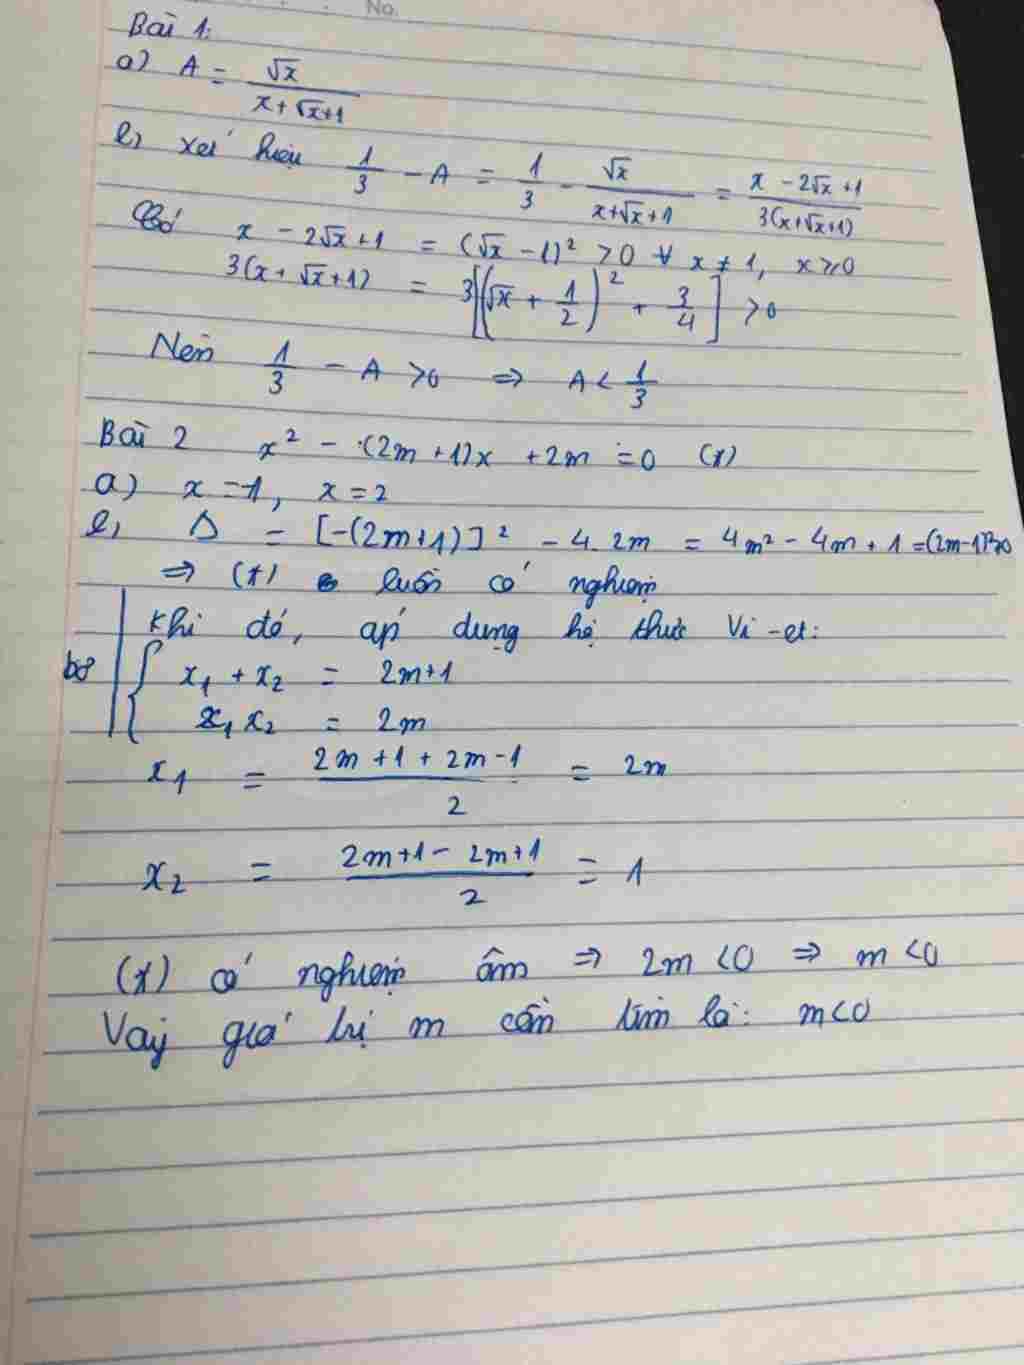 No.
Bài 1:
a) A = √x / (x + √x + 1)
b, xét hiệu 1/3 - A = 1/3 - √x / (x + √x + 1) = (x - 2√x + 1) / 3(x + √x + 1)
Có x - 2√x + 1 = (√x - 1)² > 0 ∀ x ≠ 1, x ≥ 0
3(x + √x + 1) = 3[(√x + 1/2)² + 3/4] > 0
Nên 1/3 - A > 0 ⇒ A < 1/3
Bài 2 x² - (2m + 1)x + 2m = 0 (*)
a) x = 1, x = 2
b, Δ = [-(2m+1)]² - 4.2m = 4m² - 4m + 1 = (2m-1)² ≥ 0
⇒ (*) luôn có nghiệm
Khi đó, áp dụng hệ thức Vi-et:
bỏ { x₁ + x₂ = 2m+1
x₁x₂ = 2m
x₁ = (2m + 1 + 2m - 1) / 2 = 2m
x₂ = (2m + 1 - 2m + 1) / 2 = 1
(*) có nghiệm âm ⇒ 2m < 0 ⇒ m < 0
Vậy giá trị m cần tìm là: m < 0